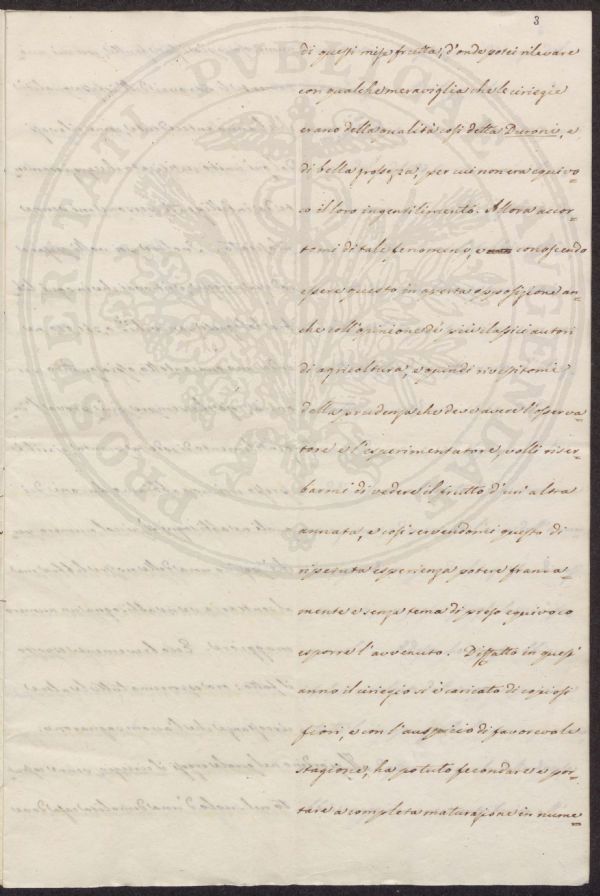 3
di questi mise frutta, d'onde potei rilevare
con qualche meraviglia che le ciriegie
erano della qualità così detta Duroni, e
di bella grossezza, per cui non era equivo=
co il loro ingentilimento. Allora accor=
tomi di tale fenomeno, e conoscendo
essere questo in aperta opposizione an=
che coll'opinione di più classici autori
di agricoltura, e quindi rivestitomi
della prudenza che deve avere l'osserva=
tore e l'esperimentatore, volli riser=
barmi di vedere il frutto d'un'altra
annata, e così servendomi questo di
ripetuta esperienza potere franca=
mente e senza tema di preso equivoco
esporre l'avvenuto. Diffatto in quest'
anno il ciriegio si è caricato di copiosi
fiori, e con l'auspicio di favorevole
stagione, ha potuto fecondare e por=
tare a completa maturazione in nume=
PROSPERITATI PVBLICAE AVGENDAE